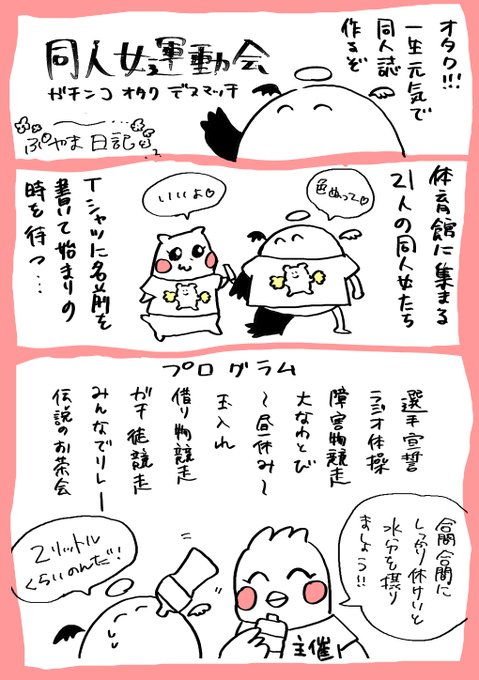 オタク!!!
一生元気で
同人誌
作るぞ
同人女運動会
ガチンコ オタク デスマッチ
ぷやま日記
体育館に集まる
21人の同人女たち
色ぬって♡
いいよ♡
Tシャツに名前を
書いて始まりの
時を待つ…
プログラム
選手宣誓
ラジオ体操
障害物競走
大なわとび
〜昼休み〜
玉入れ
借り物競走
ガチ徒競走
みんなでリレー
伝説のお茶会
合間合間に
しっかり休けいと
水分を摂り
ましょう!!
2リットル
くらいのんだ!
主催